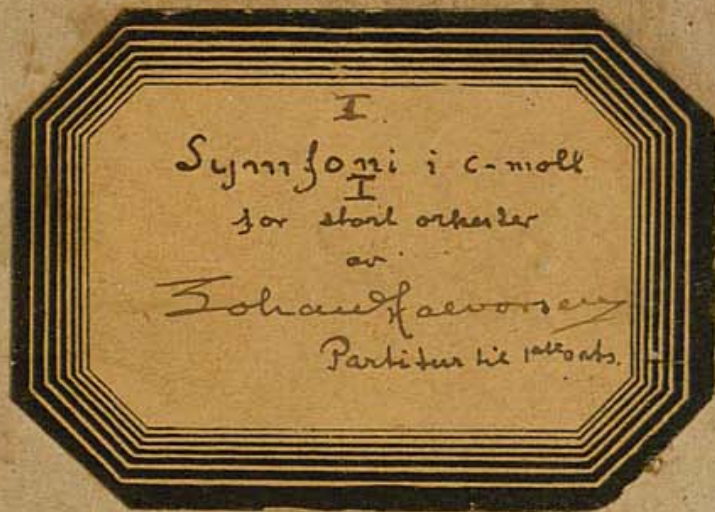 I
Symfoni i c-moll
I
for stort orkester
av
Johan Halvorsen
Partitur til 1ste sats.